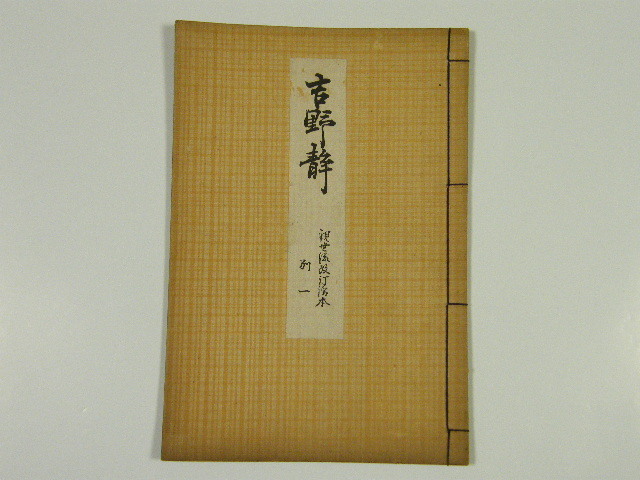 吉野靜
観世流改訂謡本
別一